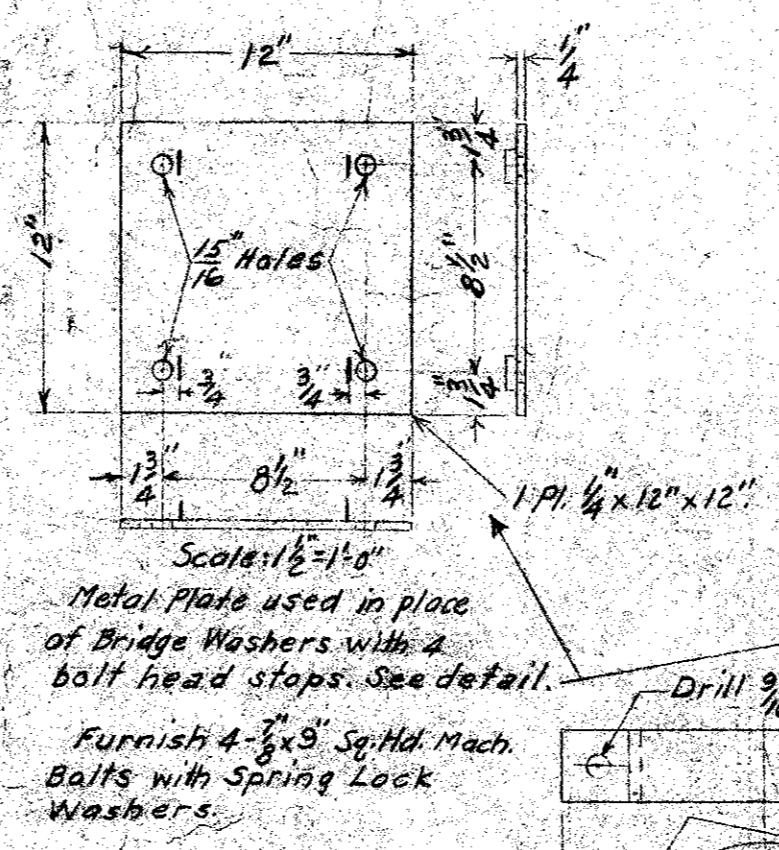 12"
1/4
1 3/4"
12"
15/16" Holes
8 1/2"
3/4"
3/4"
1 3/4"
1 3/4"
8 1/2"
1 3/4"
1 Pl. 1/4" x 12" x 12".
Scale: 1 1/2" = 1'-0"
Metal Plate used in place
of Bridge Washers with 4
bolt head stops. See detail.
Drill 9/16
Furnish 4-7/8" x 9" Sq. Hd. Mach.
Bolts with Spring Lock
Washers.